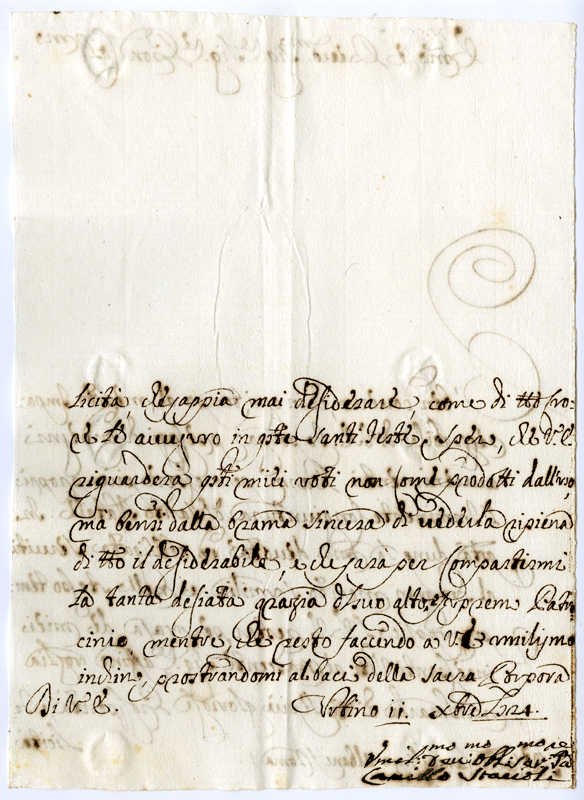 licità, che sappia mai desiderare, come di tto cuo-
re le auguro in qste Sante feste, e spero, che V. E.
riguarderà qsti miei voti non come prodotti dall'uso,
ma bensì dalla brama sincera di vederla ripiena
di tto il desiderabile, e che sarà per compartirmi
la tanto desiata grazia del suo alto, e suprem Patro
cinio, mentre, che resto facendo a V. E. umilissmo
inchin, prostrandomi al baci della sacra Porpora
Di V. E. Urbino 11. Xbre 1724.
Umil.mo Dev.mo Obb.mo
Camillo Stacioli